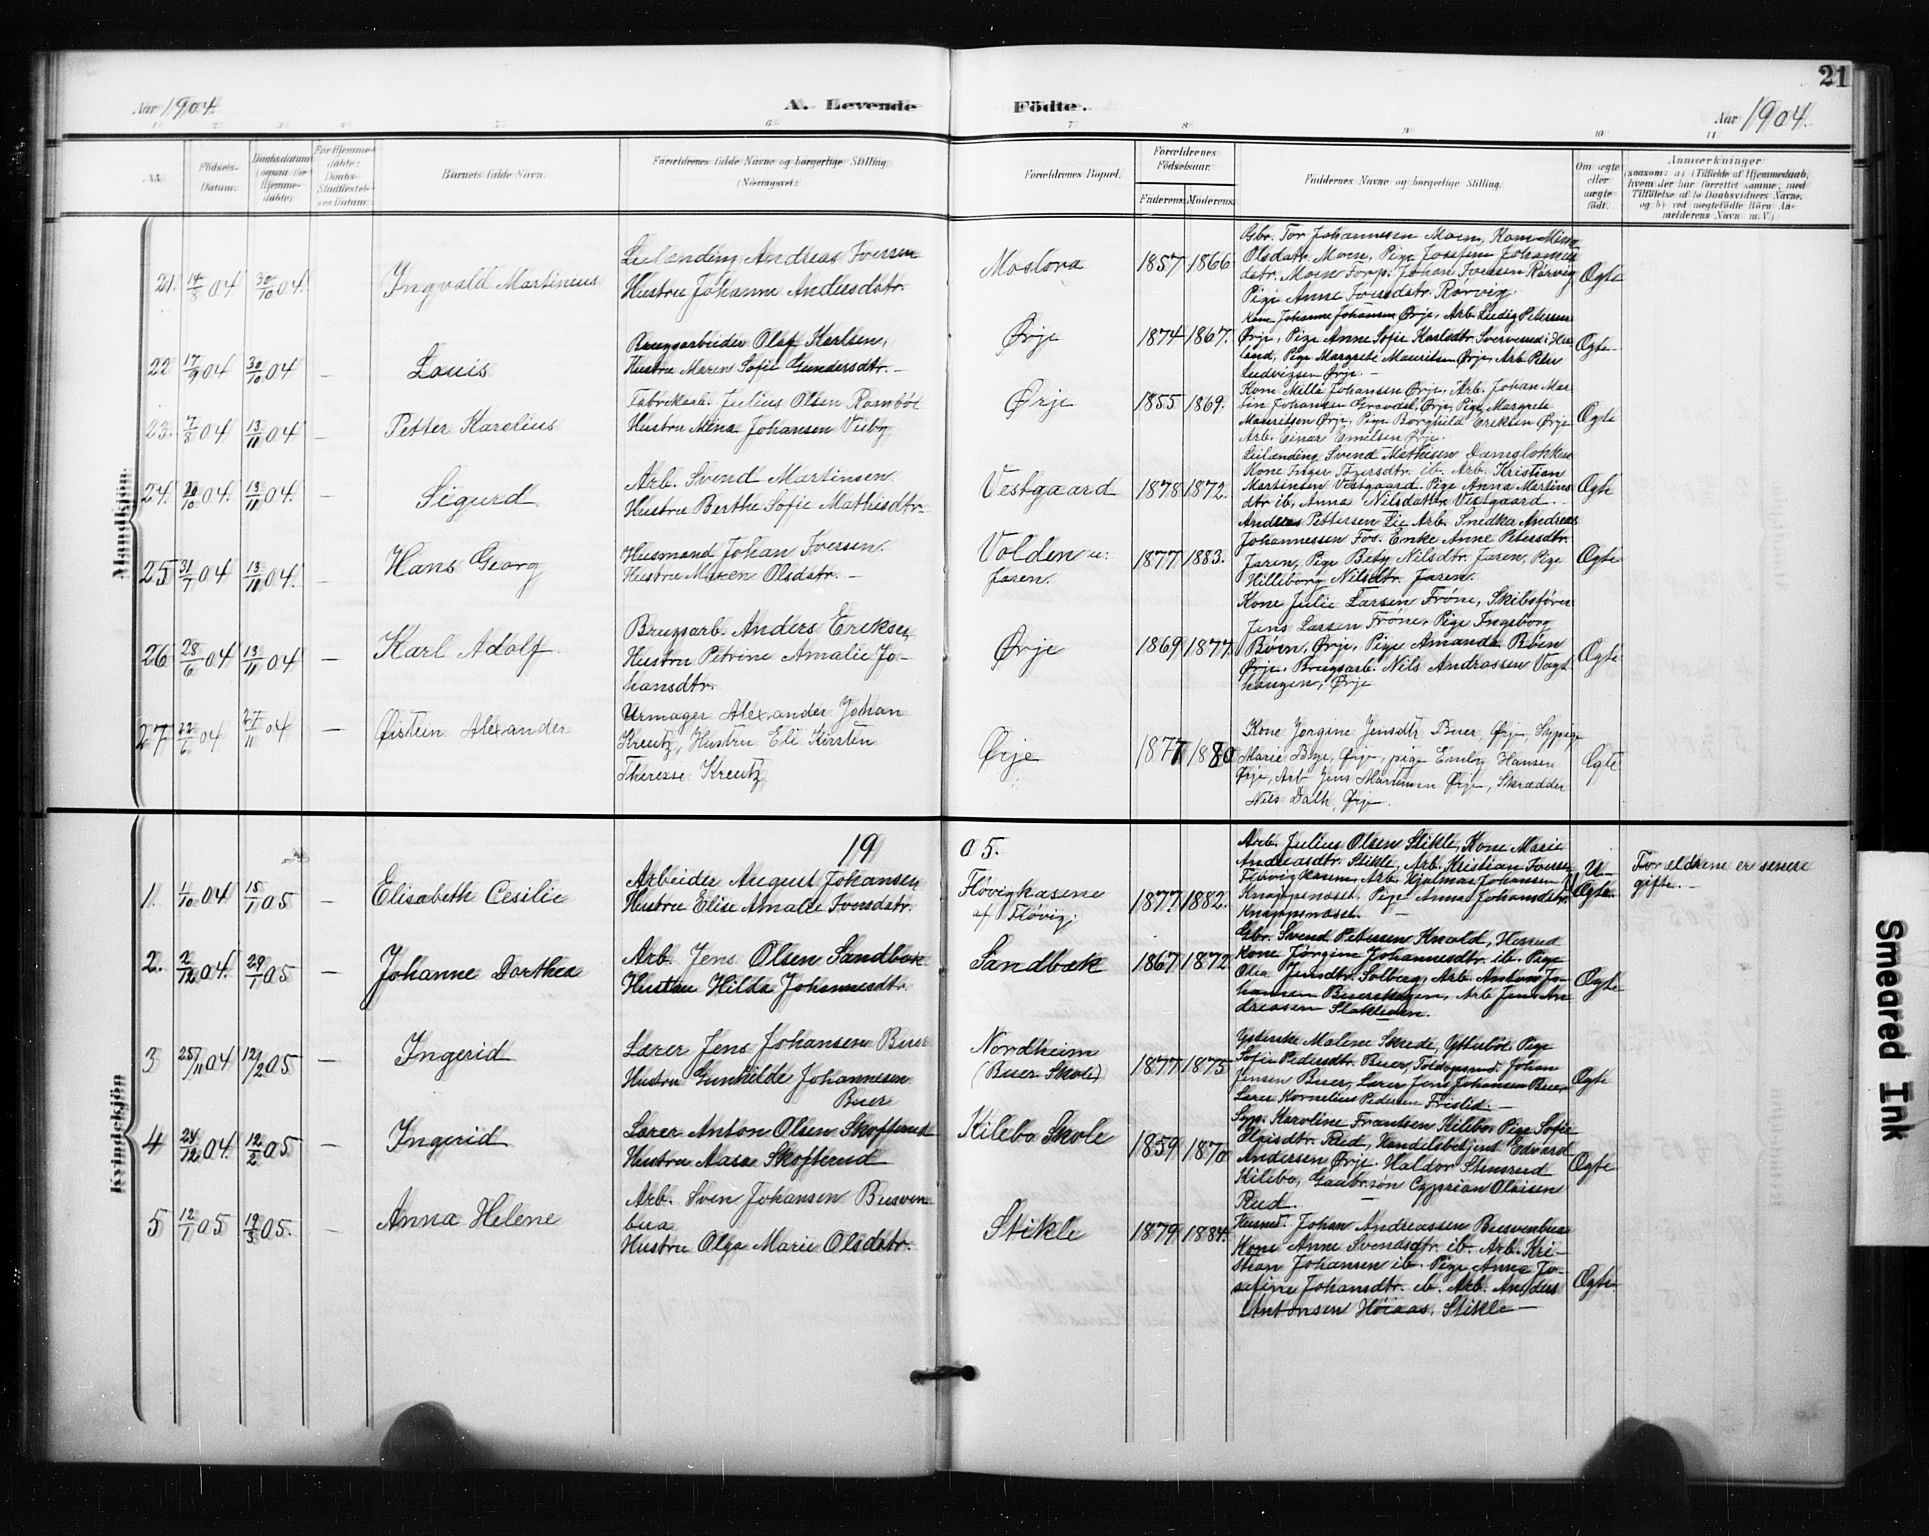 21
Aar 1904.
A. Levende
Födte.
Aar 1904.
1 2 3 4 5 6 7 8 9 10 11
No.
Födsels-
Datum.
Daabsdatum
(ogsaa for
Hjemme-
döbte).
For Hjemme-
döbte:
Daabs-
Stadfæstel-
ses Datum.
Barnets fulde Navn.
Forældrenes fulde Navne og borgerlige Stilling.
(Næringsvei.)
Forældrenes Bopæl.
Forældrenes
Födselsaar.
Faderens. Moderens.
Faddernes Navne og borgerlige Stilling.
Om ægte
eller
uægte
födt.
Anmærkninger
(saasom: a) i Tilfælde af Hjemmedaab,
hvem der har forrettet samme, med
Tilföielse af to Daabsvidners Navne,
og b) ved uægtefödte Börn An-
melderens Navn m. V.)
Mandkjön
21. 14/8 04 30/10 04. Ingvald Martinius
Leilænding Andreas Iversen
Hustru Johanne Andersdatr.
Moslora 1857 1866
Gbr. Tor Johannesen Moen, Kone Mina
Olsdatr. Moen, Pige Josefine Johannes
datr. Moen Torp. Johan Iversen Rørvig
Pige Anne Iversdatr. Rørvig.
Ægte
22 17/9 04 30/10 04 — Louis
Brugsarbeider Olaf Karlsen,
Hustru Maren Sofie Gundersdtr. —
Ørje 1874 1867.
Kone Johanne Johansen Ørje, Arb. Ludig Petersen
Ørje, Pige Anne Sofie Karlsdtr. Svervend i Hæ
land, Pige Margrete Mauritsen Ørje, Arb. Peter
Ludvigsen Ørje. —
Ægte
23. 7/8 04 13/11 04 — Petter Karelius
Fabrikarb. Julius Olsen Rambøl
Hustru Alena Johansen Visby
Ørje 1855 1869.
Kone Milla Johansen Ørje, Arb. Johan Mar
tin Johansen Gravdal, Ørje, Pige Margrete
Mauritsen Ørje, Pige Borghild Eriksen Ørje
Arb. Einar Emilsen Ørje.
Ægte
24. 20/10 04. 13/11 04. — Sigurd
Arb. Svend Martinsen
Hustru Berthe Sofie Mathisdtr.
Vestgaard 1878 1872.
Leilænding Svend Mathisen Damglokken
Kone Inger Torersdtr. ib. Arb. Kristian
Martinsen Vestgaard. Pige Anna Martins
dtr ib. Anna Nilsdatter Vestgaard.
Ægte
25 31/7 04 13/11 04. — Hans Georg
Husmand Johan Iversen.
Hustru Maren Olsdatr. —
Volden u:
Jaren. 1877 1883.
Andreas Pettersen Lie Arb. Smedka Andreas
Johannessen Fos. Enke Anne Petersdtr.
Jaren, Pige Betzy Nilsdtr. Jaren, Pige
Hilleborg Nilsdtr. Jaren.
Ægte
26 28/6 04 13/11 04 — Karl Adolf
Brugsarb. Anders Eriksen
Hustru Petrine Amalie Jo-
hansdtr.
Ørje 1869 1877.
Kone Julie Larsen Frøne, Skibsfører
Jens Larsen Frøne, Pige Ingeborg
Bøen, Ørje, Pige Amanda Bøen
Ørje, Brugsarb. Nils Andreassen Vagt
haugen, Ørje
Ægte
27 22/6 04 27/11 04 — Øistein Alexander
Urmager Alexander Johan
Kreutz, Hustru Eli Kirsten
Therese Kreutz
Ørje 1877 1880
Kone Jørgine Jensdtr Buer, Ørje, Sypige
Marie Bye, Ørje, pige Emily Hansen
Ørje, Arb Jens Martinsen Ørje, Skrædder
Nils Dalh, Ørje.
Ægte
1905.
Kvindekjön
1. 1/10 04 15/1 05 — Elisabeth Cesilie
Arbeider August Johansen
Hustru Elise Amalie Iversdtr.
Fløvigkasene
af Fløvig. 1877. 1882.
Arb. Julius Olsen Stikle, Kone Marie
Andreasdtr. Stikle, Arb. Kristian Iversen
Fløvigkasen, Arb. Hjalmar Johansen
Knappsnæset, Pige Anna Johansdtr.
Knappsnæset. —
U-
Ægte.
Forældrene er senere
gifte. —
2. 2/12 04. 29/1 05 — Johanne Dorthea
Arb. Jens Olsen Sandbæk
Hustru Hilda Johannesdtr.
Sandbæk 1867 1872
Gbr. Svend Petersen Knold, Hesrud
Kone Jørgine Johannesdtr. ib. Pige
Olia Jensdtr. Solberg, Arb. Anton Jo-
hansen Buerskogen, Arb Jens An
dreasen Slokteien.
Ægte
3 25/11 04 12/2 05 — Ingerid
Lærer Jens Johansen Buer
Hustru Gunhilde Johannesen
Buer
Nordheim
(Buer Skole) 1877 1875
Malene Skrede, Ytterbøl Pige
Sofie Pedersdtr. Buer, Toldopsmd. Johan
Jensen Buer, Lærer Jens Johansen Buer,
Lærer Kornelius Pedersen Frislid. —
Ægte
4 24/12 04. 12/2 05 — Ingerid
Lærer Anton Olsen Skofterud
Hustru Aasa Skofterud
Kilebo Skole 1859 1870
Syp. Karoline Frantsen Kilebo, Pige Sofie
Oloisdtr. Rud, Handelsbetjent Edvard
Andersen Ørje. Haldor Stensrud
Kilebo, Gaardbrsøn Cyprian Oloisen
Rud. —
Ægte
5 12/1 05 19/3 05. — Anna Helene
Arb. Sven Johansen Busven
bua
Hustru Olga Marie Olsdatr.
Stikle 1879 1884.
Husmd. Johan Andreassen Busvenbua
Kone Anne Svendsdtr. ib. Arb. Kri-
stian Johansen ib. Pige Anna Jo-
sefine Johansdtr. ib. Arb. Anders
Antonsen Høiaas, Stikle —
Ægte.
Smeared Ink